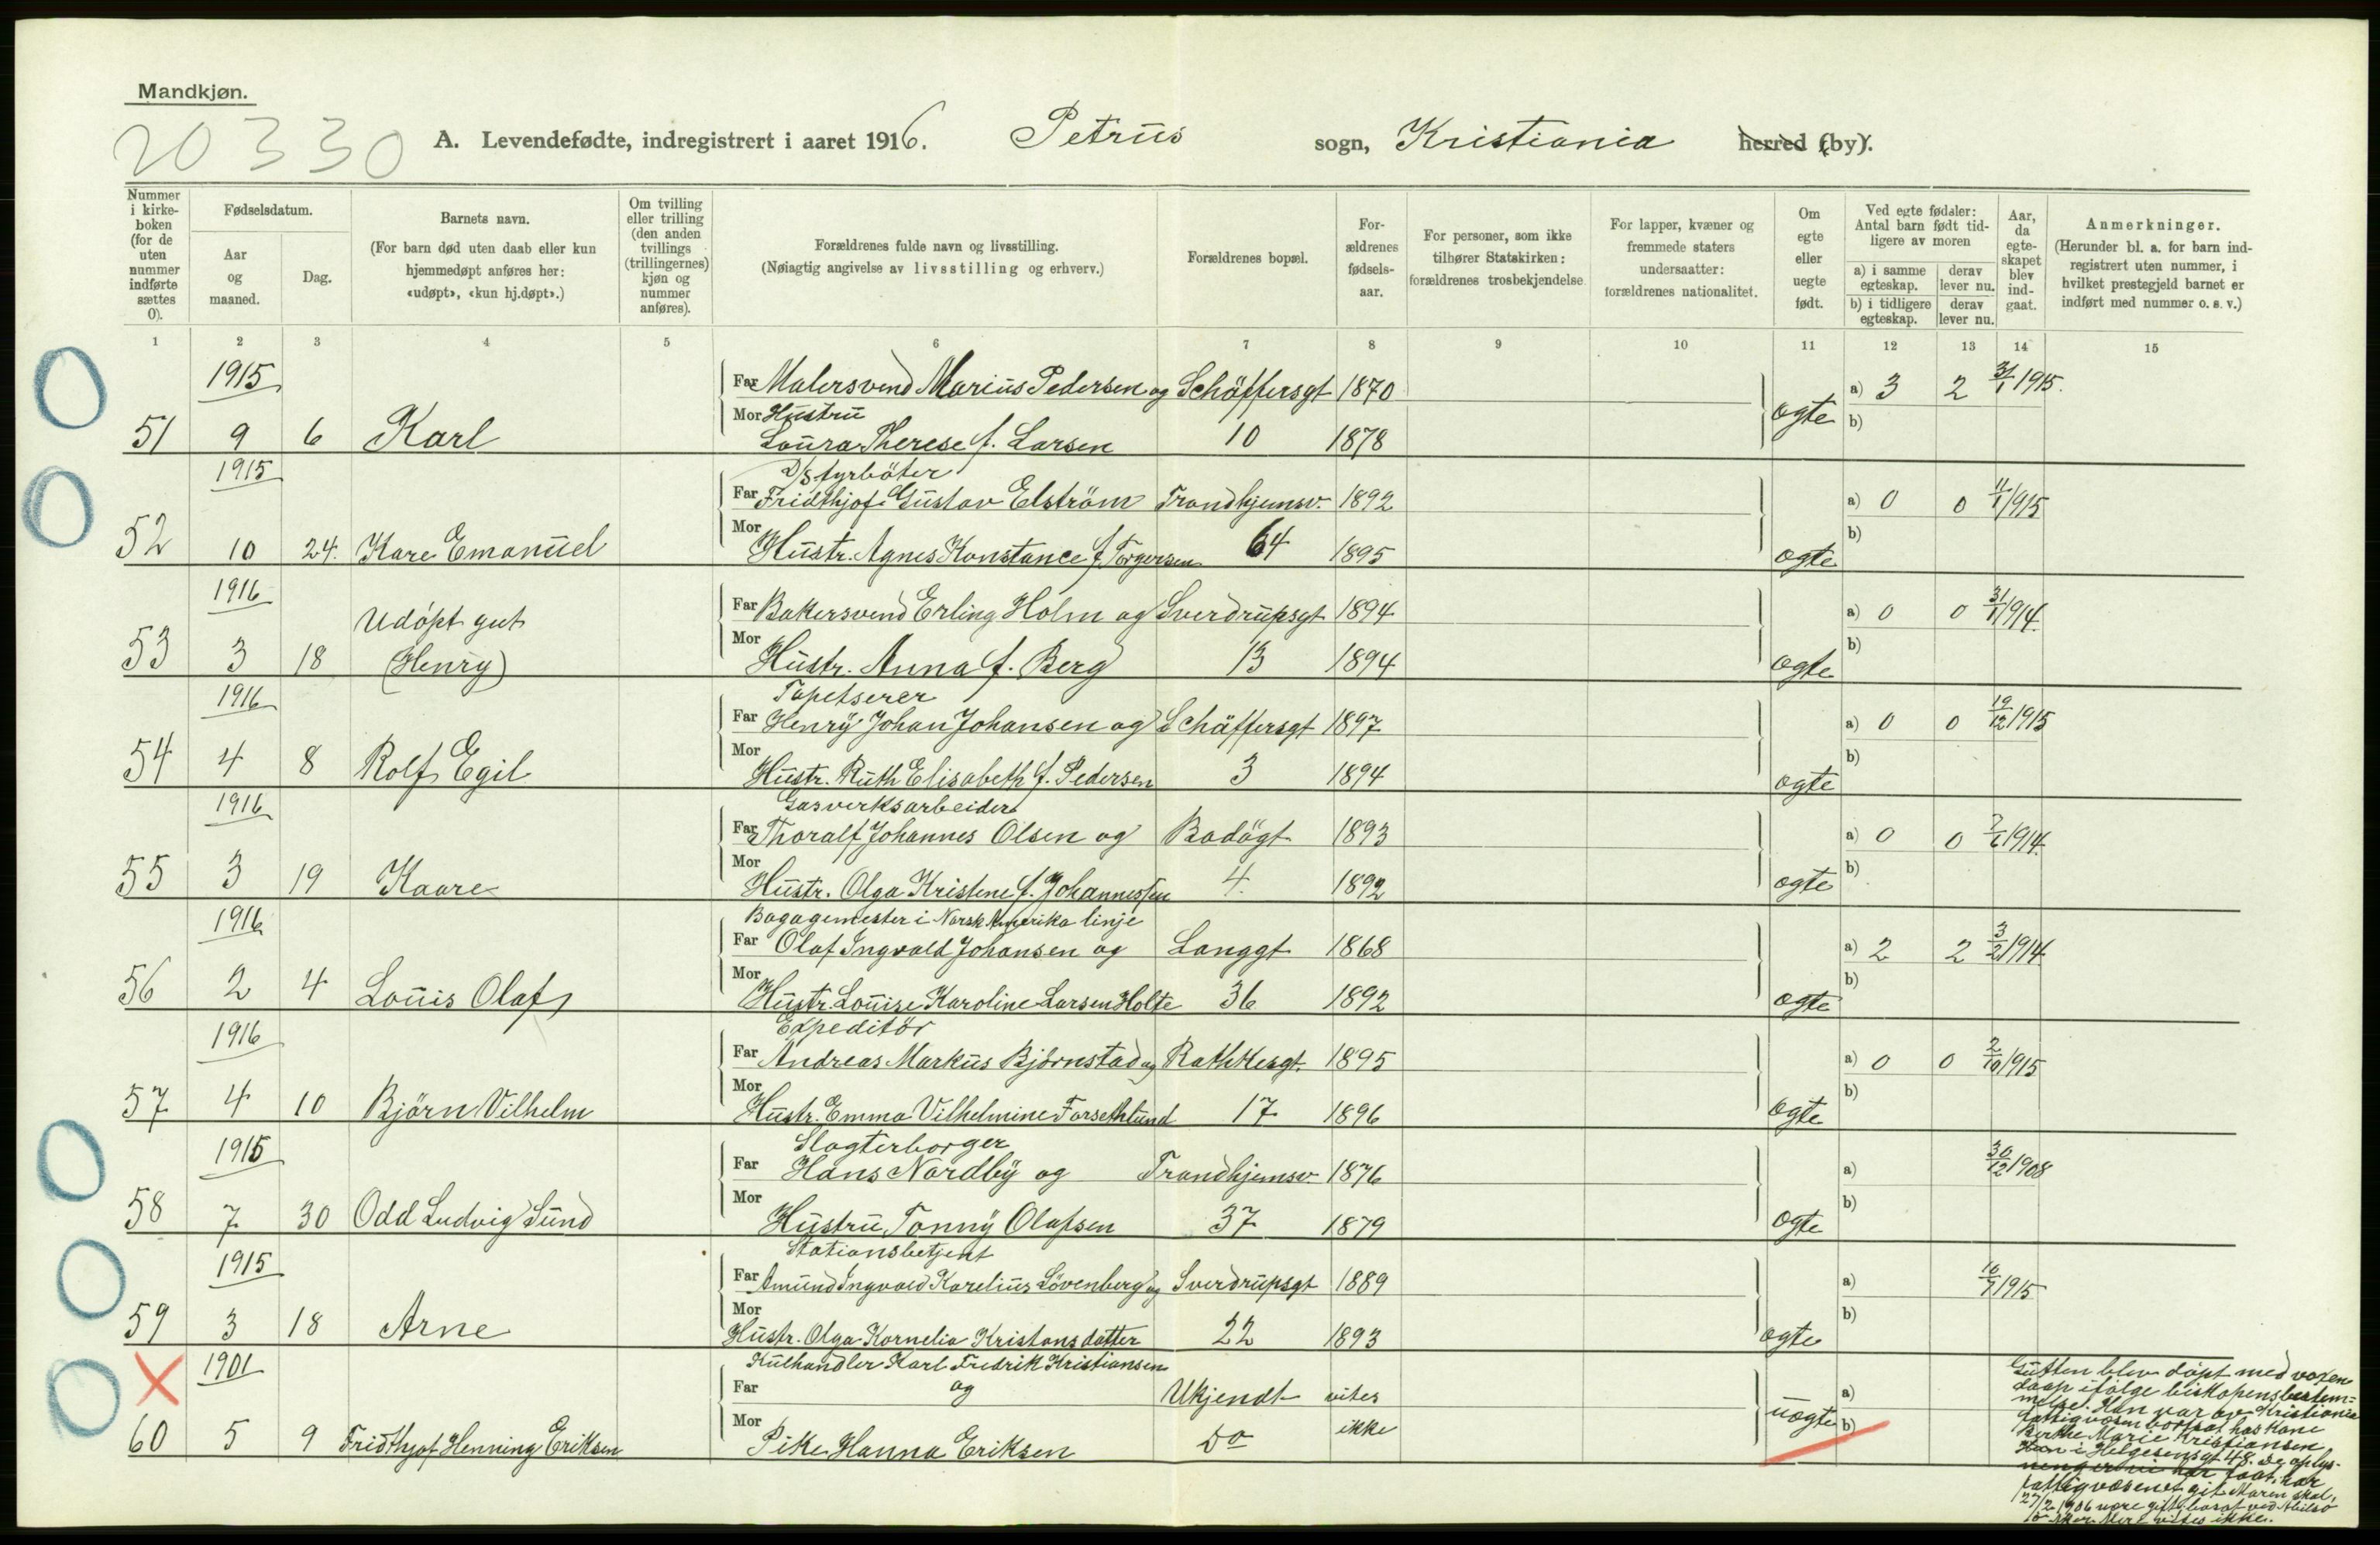 Mandkjøn.
20330
A. Levendefødte, indregistrert i aaret 1916. Petrus sogn, Kristiania herred (by).
Nummer i kirke-boken (for de uten nummer indførte sættes 0).
Fødselsdatum.
Aar og maaned.
Dag.
Barnets navn.
(For barn død uten daab eller kun hjemmedøpt anføres her: «udøpt», «kun hj.døpt».)
Om tvilling eller trilling (den anden tvillings (trillingernes) kjøn og nummer anføres).
Forældrenes fulde navn og livsstilling.
(Nøiagtig angivelse av livsstilling og erhverv.)
Forældrenes bopæl.
For-ældrenes fødsels-aar.
For personer, som ikke tilhører Statskirken: forældrenes trosbekjendelse
For lapper, kvæner og fremmede staters undersaatter: forældrenes nationalitet.
Om egte eller uegte født.
Ved egte fødsler: Antal barn født tid-ligere av moren
a) i samme egteskap. derav lever nu.
b) i tidligere egteskap. derav lever nu.
Aar, da egte-skapet blev ind-gaat.
Anmerkninger.
(Herunder bl. a. for barn ind-registrert uten nummer, i hvilket prestegjeld barnet er indført med nummer o. s. v.)
1 2 3 4 5 6 7 8 9 10 11 12 13 14 15
1915 Far Malersvend Marius Pedersen og Schäffersgt 1870 a) 3 2 31/1 1915.
Mor Hustru ægte b)
51 9 6 Karl Laura Therese f. Larsen 10 1878
1915 D/S fyrböter
Far Fridthjof Gustav Elström Trondhjemsv. 1892 a) 0 0 11/1 1915
52 10 24. Kare Emanuel Mor Hustr. Agnes Konstance f. Torgersen 64 1895 ægte b)
1916
Udöpt gut Far Bakersvend Erling Holm og Sverdrupsgt 1894 a) 0 0 31/1 1914.
53 3 18 (Henry) Mor Hustr. Anna f. Berg 13 1894 ægte b)
1916 Tapetserer
Far Henry Johan Johansen og Schäffersgt 1897 a) 0 0 19/12 1915
54 4 8 Rolf Egil Mor Hustr. Ruth Elisabeth f. Pedersen 3 1894 ægte b)
1916 Gasverksarbeider
Far Thoralf Johannes Olsen og Bodögt 1893 a) 0 0 7/6 1914.
55 3 19 Kaare Mor Hustr. Olga Kristene f. Johannessen 4. 1892 ægte b)
1916 Bagagemester i Norsk Amerika linje
Far Olaf Ingvald Johansen og Langgt 1868 a) 2 2 3/2 1914
56 2 4 Louis Olaf Mor Hustr. Louise Karoline Larsen Holte 36 1892 ægte b)
1916 Expeditör
Far Andreas Markus Björnstad og Rathkesgt. 1895 a) 0 0 2/10 1915
57 4 10 Björn Vilhelm Mor Hustr. Emma Vilhelmine Forsethlund 17 1896 ægte b)
1915 Slagterborger
Far Hans Nordby og Trondhjemsv. 1876 a) 30/12 1908
58 7 30 Odd Ludvig Sund Mor Hustru Tonny Olafsen 37 1879 ægte b)
1915 Stationsbetjent
Far Amund Ingvald Karelius Lövenberg og Sverdrupsgt 1889 a) 16/7 1915
59 3 18 Arne Mor Hustr. Olga Kornelia Kristansdatter 22 1893 ægte b)
1901 Kulhandler Karl Fredrik Kristiansen
Far og Ukjendt vites a)
60 5 9 Fridthjof Henning Eriksen Mor Pike Hanna Eriksen do ikke uægte b)
Gutten blev döpt med voxen
daap ifölge biskopens bestem=
melse. Han var av Kristiania
fattigvæsen bortsat hos Kone
Berthe Marie Kristiansen
i Helgesensgt 48. De oplys-
ninger vi har faat, har
fattigvæsenet git. Moren skal,
27/2 1906 være gift, bosat ved
Aker. Mere vites ikke.